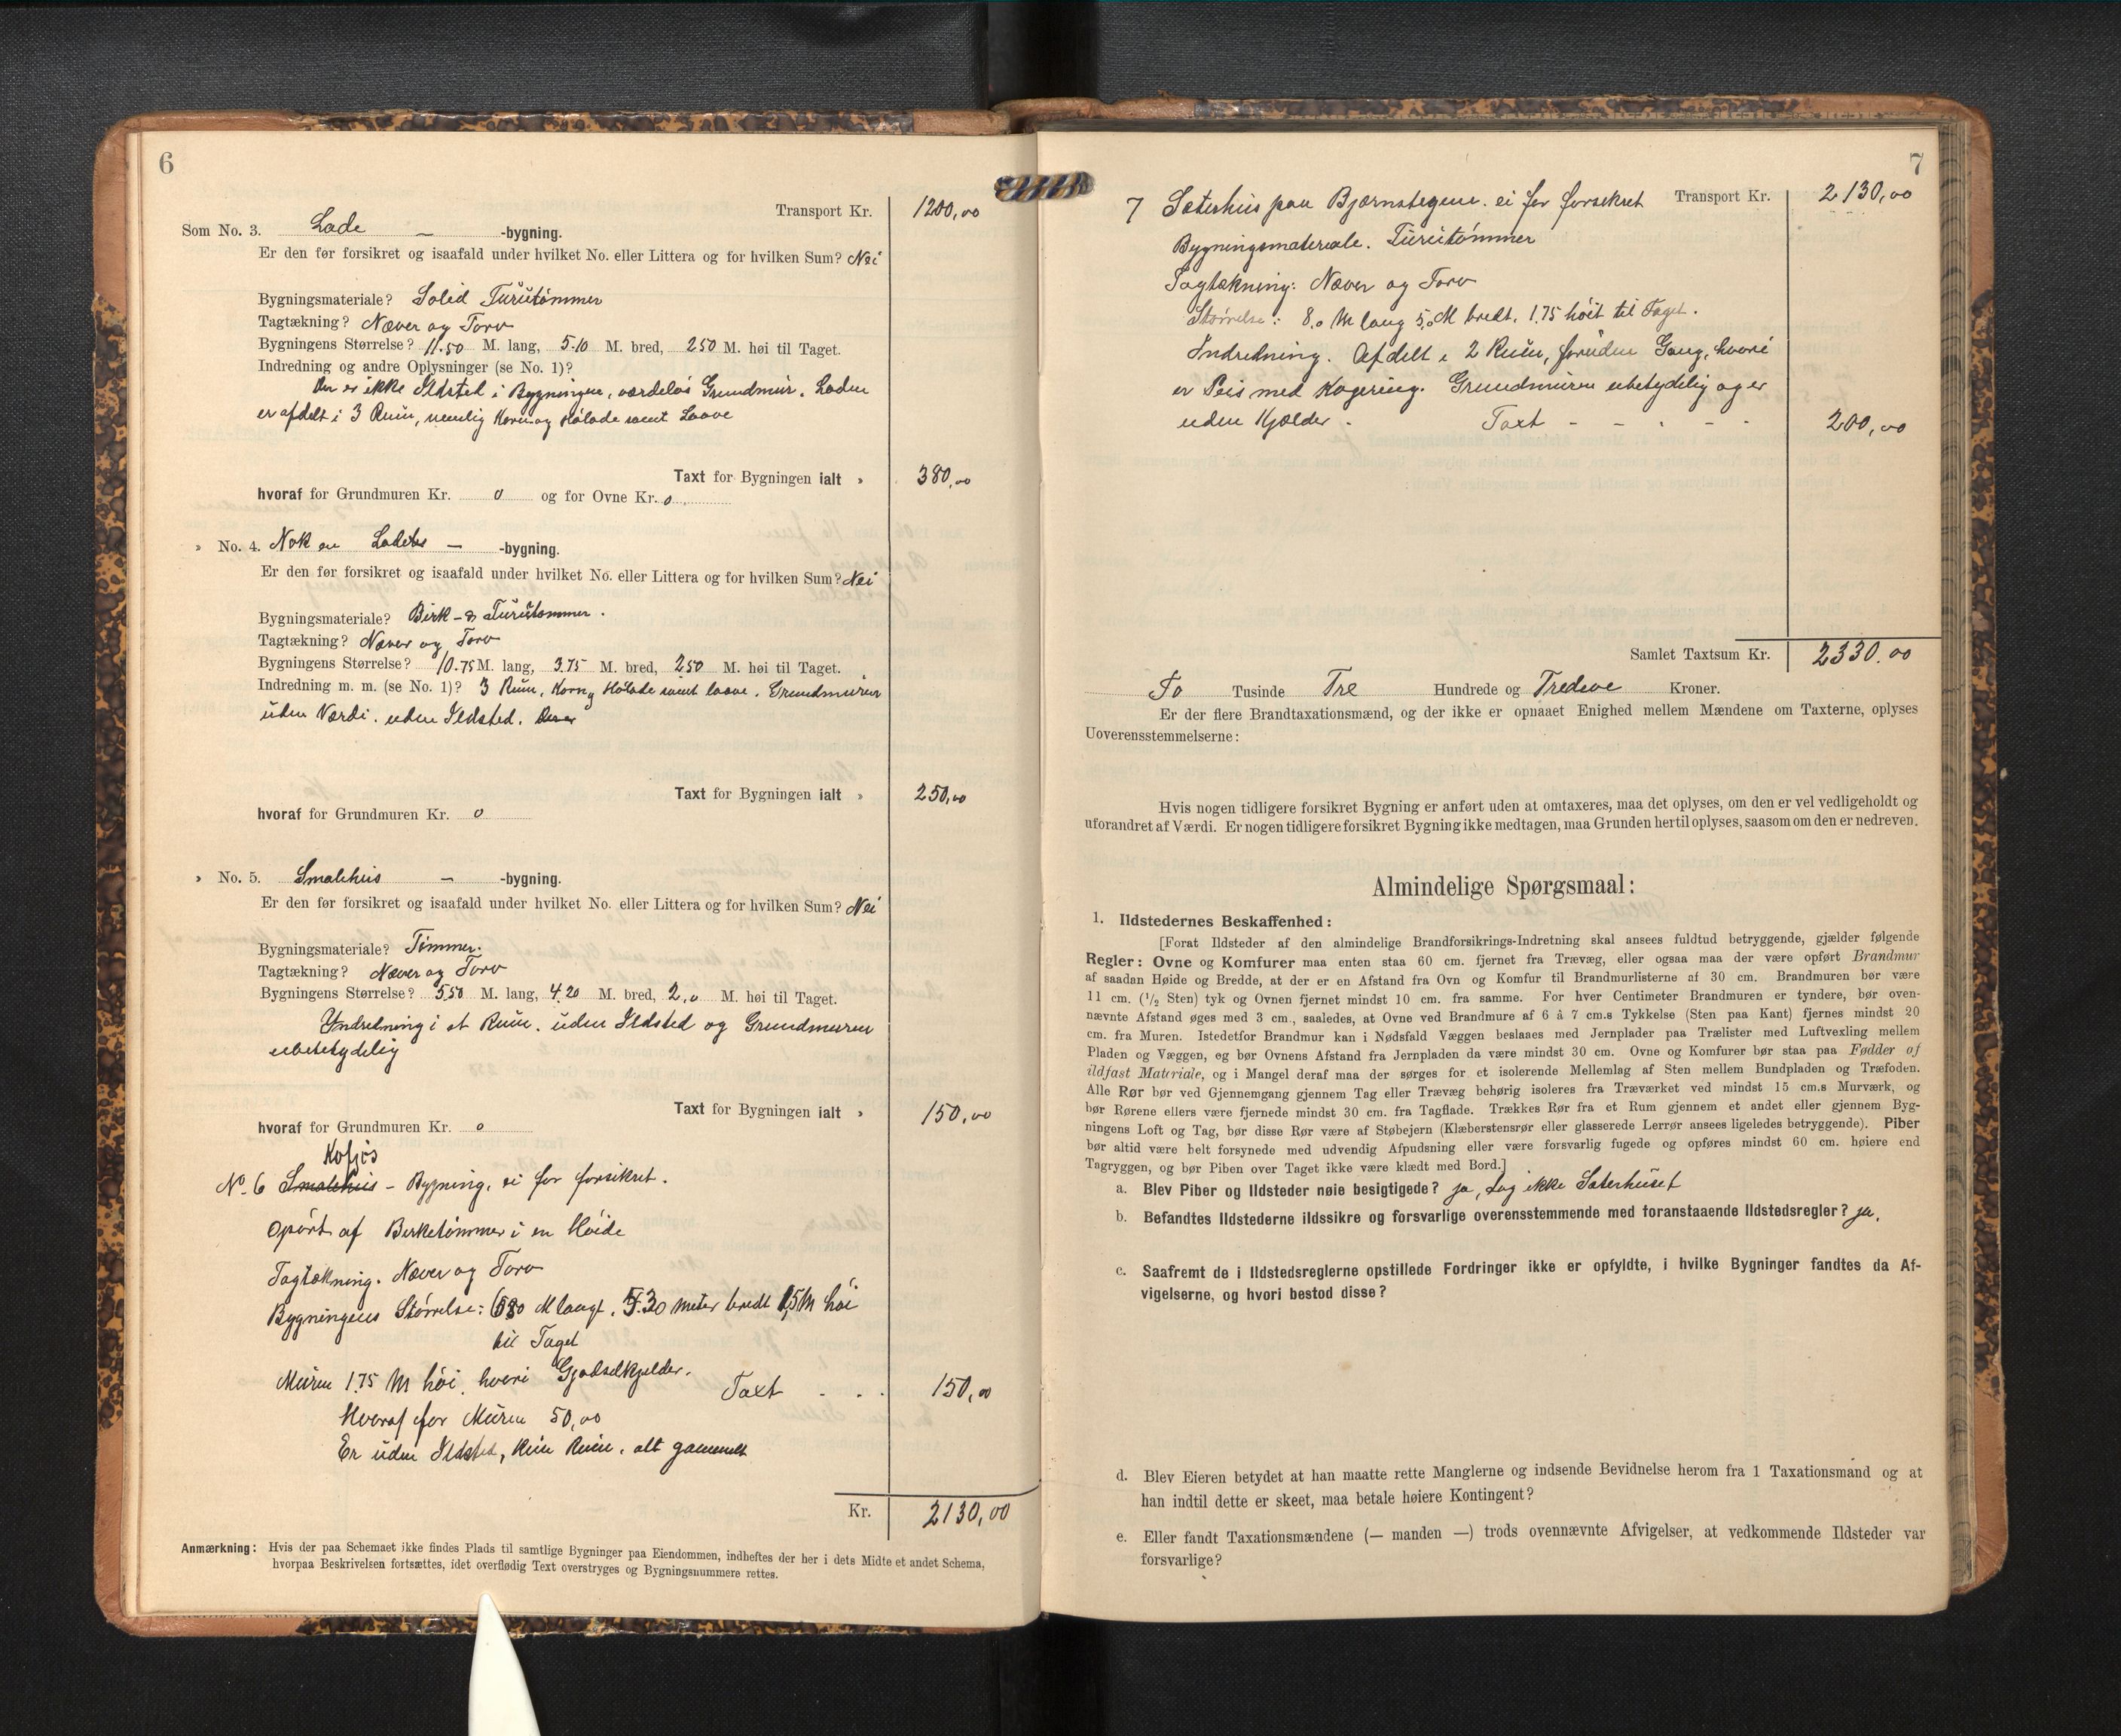 6
Transport Kr. 1200,00
Som No. 3. Lade — -bygning.
Er den før forsikret og isaafald under hvilket No. eller Littera og for hvilken Sum? Nei
Bygningsmateriale? Solid Furutømmer
Tagtækning? Næver og Torv
Bygningens Størrelse? 11.50 M. lang, 5.10 M. bred, 250 M. høi til Taget.
Indredning og andre Oplysninger (se No. 1)?
Der er ikke Ildsted i Bygningen, værdeløs Grundmur. Laden
er afdelt i 3 Rum, nemlig Korn og Hölade samt Laave
Taxt for Bygningen ialt » 380,00
hvoraf for Grundmuren Kr. 0 og for Ovne Kr. 0
» No. 4. Nok en Lade — -bygning.
Er den før forsikret og isaafald under hvilket No. eller Littera og for hvilken Sum? Nei
Bygningsmateriale? Birk- & Furutømmer.
Tagtækning? Næver og Torv
Bygningens Størrelse? 10.75 M. lang, 3.75 M. bred, 250 M. høi til Taget.
Indredning m. m. (se No. 1)? 3 Rum, Korn og Hölade samt laave. Grundmuren
uden Værdi. uden Ildsted.
Taxt for Bygningen ialt » 250,00
hvoraf for Grundmuren Kr. 0
» No. 5. Smalehus — -bygning.
Er den før forsikret og isaafald under hvilket No. eller Littera og for hvilken Sum? Nei
Bygningsmateriale? Tømmer.
Tagtækning? Næver og Torv
Bygningens Størrelse? 5.50 M. lang, 4.20 M. bred, 2,0 M. høi til Taget.
Yndredning i et Rum. uden Ildsted og Grundmuren
ubetydelig
Taxt for Bygningen ialt » 150,00
hvoraf for Grundmuren Kr. 0
Kofjös
No. 6 Smalehus - Bygning, ei før forsikret.
Opört af Birketömmer i en Höide
Tagtækning. Næver og Torv
Bygningens Størrelse: M langt, 5.30 meter bredt 1,5 M höi
til Taget
Muren 1.75 M höi, hvori Gjødselkjelder. Taxt - - - 150,00
Hvoraf for Muren 50,00
Er uden Ildsted, Rum, alt gammelt
Kr. 2130,00
Anmærkning: Hvis der paa Schemaet ikke findes Plads til samtlige Bygninger paa Eiendommen, indheftes der her i dets Midte et andet Schema,
hvorpaa Beskrivelsen fortsættes, idet overflødig Text overstryges og Bygningsnummere rettes.
7
7 Sæterhus paa Bjørnstegane. ei før forsikret Transport Kr. 2130,00
Bygningsmateriale. Furutømmer
Tagtækning: Næver og Torv
Størrelse: 8,0 M lang 5,0 M bredt, 1.75 höit til Taget.
Indredning. Afdelt i 2 Rum, foruden Gang, hvori
er Peis med Kogering. Grundmuren ubetydelig og er
uden Kjælder. Taxt - - - - - 200,00
Samlet Taxtsum Kr. 2330.00
To Tusinde Tre Hundrede og Tredeve Kroner.
Er der flere Brandtaxationsmænd, og der ikke er opnaaet Enighed mellem Mændene om Taxterne, oplyses
Uoverensstemmelserne:
Hvis nogen tidligere forsikret Bygning er anført uden at omtaxeres, maa det oplyses, om den er vel vedligeholdt og
uforandret af Værdi. Er nogen tidligere forsikret Bygning ikke medtagen, maa Grunden hertil oplyses, saasom om den er nedreven.
Almindelige Spørgsmaal:
1. Ildstedernes Beskaffenhed:
[Forat Ildsteder af den almindelige Brandforsikrings-Indretning skal ansees fuldtud betryggende, gjælder følgende
Regler: Ovne og Komfurer maa enten staa 60 cm. fjernet fra Trævæg, eller ogsaa maa der være opført Brandmur
af saadan Høide og Bredde, at der er en Afstand fra Ovn og Komfur til Brandmurlisterne af 30 cm. Brandmuren bør være
11 cm. (1/2 Sten) tyk og Ovnen fjernet mindst 10 cm. fra samme. For hver Centimeter Brandmuren er tyndere, bør oven-
nævnte Afstand øges med 3 cm., saaledes, at Ovne ved Brandmure af 6 à 7 cm.s Tykkelse (Sten paa Kant) fjernes mindst 20
cm. fra Muren. Istedetfor Brandmur kan i Nødsfald Væggen beslaaes med Jernplader paa Trælister med Luftvexling mellem
Pladen og Væggen, eg bør Ovnens Afstand fra Jernpladen da være mindst 30 cm. Ovne og Komfurer bør staa paa Fødder af
ildfast Materiale, og i Mangel deraf maa der sørges for et isolerende Mellemlag af Sten mellem Bundpladen og Træfoden.
Alle Rør bør ved Gjennemgang gjennem Tag eller Trævæg behørig isoleres fra Træværket ved mindst 15 cm.s Murværk, og
bør Rørene ellers være fjernede mindst 30 cm. fra Tagflade. Trækkes Rør fra et Rum gjennem et andet eller gjennem Byg-
ningens Loft og Tag, bør disse Rør være af Støbejern (Klæberstensrør eller glasserede Lerrør ansees ligeledes betryggende). Piber
bør altid være helt forsynede med udvendig Afpudsning eller være forsvarlig fugede og opføres mindst 60 cm. høiere end
Tagryggen, og bør Piben over Taget ikke være klædt med Bord.]
a. Blev Piber og Ildsteder nøie besigtigede? ja, dog ikke Sæterhuset
b. Befandtes Ildstederne ildssikre og forsvarlige overensstemmende med foranstaaende Ildstedsregler? ja.
c. Saafremt de i Ildstedsreglerne opstillede Fordringer ikke er opfyldte, i hvilke Bygninger fandtes da Af-
vigelserne, og hvori bestod disse?
d. Blev Eieren betydet at han maatte rette Manglerne og indsende Bevidnelse herom fra 1 Taxationsmand og at
han indtil dette er skeet, maa betale høiere Kontingent?
e. Eller fandt Taxationsmændene (— manden —) trods ovennævnte Afvigelser, at vedkommende Ildsteder var
forsvarlige?